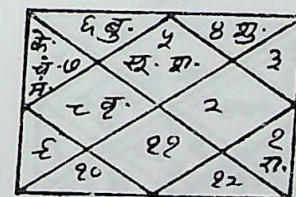 ६ बु.
५
४ शु.
के.
चं. ७
मं.
सू. श.
३
८ बृ.
२
९
११
१
रा.
१०
१२